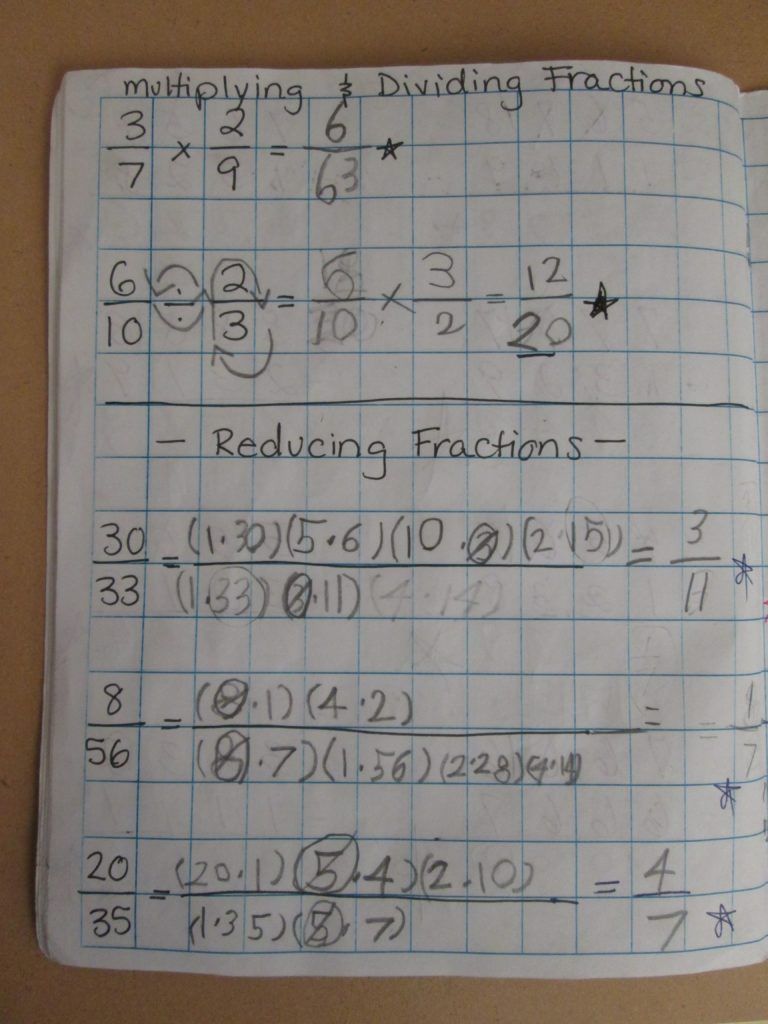 multiplying & Dividing Fractions
3/7 × 2/9 = 6/63 ★
6/10 ÷ 2/3 = 6/10 × 3/2 = 12/20 ★
— Reducing Fractions —
30/33 = (1·30)(5·6)(10·3)(2·15) / (1·33)(3·11)(4·14) = 3/11 ☆
8/56 = (8·1)(4·2) / (8·7)(1·56)(2·28)(4·14) = = 1/7 ☆
20/35 = (20·1)(5·4)(2·10) / (1·35)(5·7) = 4/7 ☆